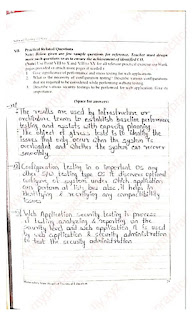 VII Practical Related Questions
Note: Below given are few sample questions for reference. Teacher must design
more such questions so as to ensure the achievement of identified CO.
1. Give significance of performance and stress testing for web applications.
2. What is the necessity of configuration testing? Describe various configurations
that are required to be considered while performing website testing.
3. Describe various security testings to be performed for web application. Give its
importance.
(Space for answers)
The results are used by infrastructure or
architecture teams to establish baseline performance
testing and assists with capacity planning
The object of stress tests is to identify the
issues that only occur when the system is
overloaded and whether the system can recover
smoothly.
2) Configuration testing is as important as any
other testing type as it discovers optimal
system under which application
can perform at its best also it helps in
identifying & verifying any compatibility
issues
3) Web Application security testing is process
of testing, analyzing & reporting on the
security level and web application it is used
by web application & security administration
to test the security administration